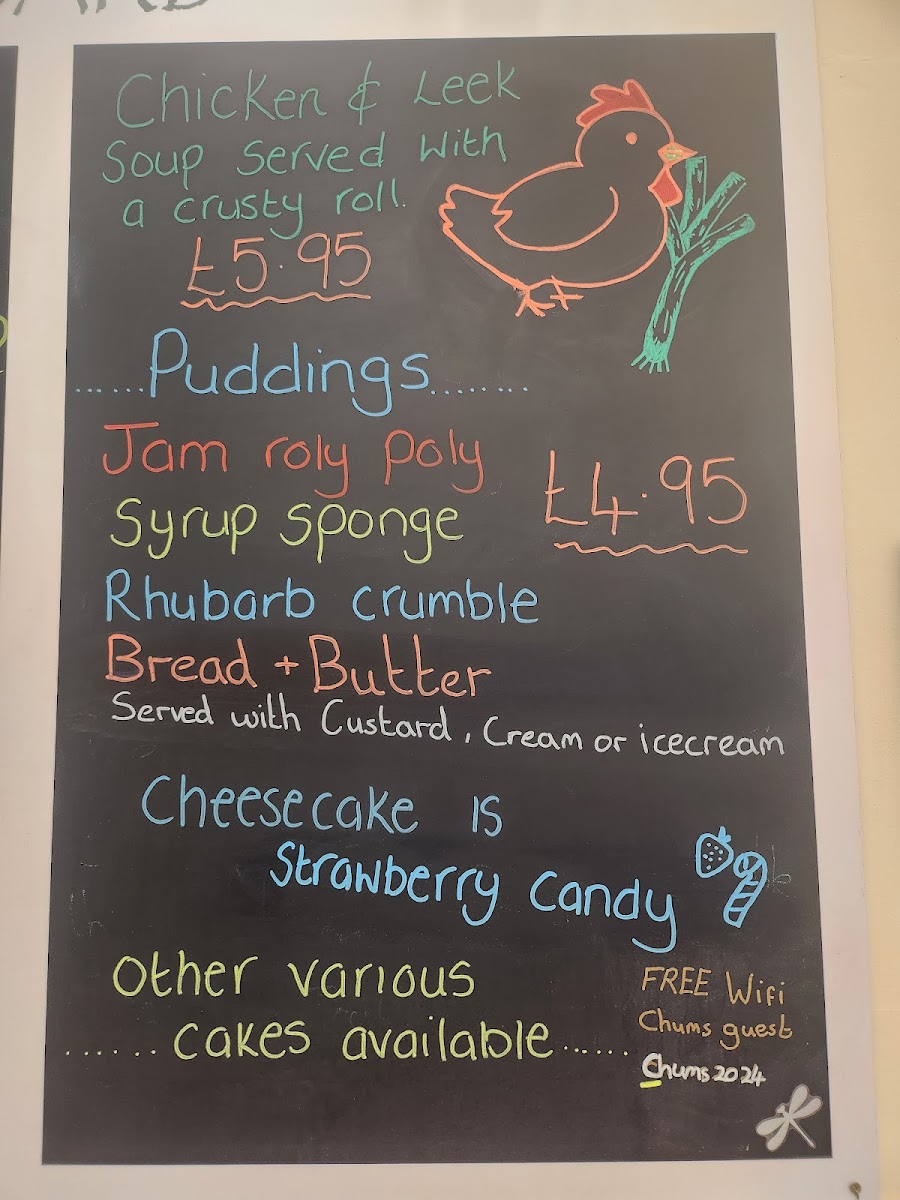 Chicken & Leek
Soup served with
a crusty roll.
£5.95
......Puddings........
Jam roly poly
£4.95
Syrup sponge
Rhubarb crumble
Bread + Butter
Served with Custard, Cream or icecream
Cheesecake is
Strawberry candy
Other various
......cakes available......
FREE Wifi
Chums guest
Chums2024